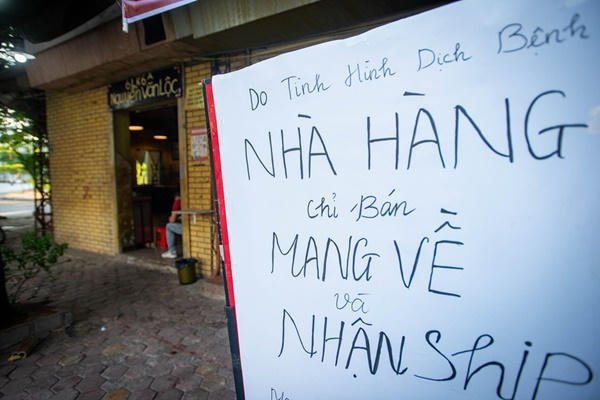 Nguyễn Văn Lộc
Do Tình Hình Dịch Bệnh
NHÀ HÀNG
chỉ Bán
MANG VỀ
và
NHẬN Ship